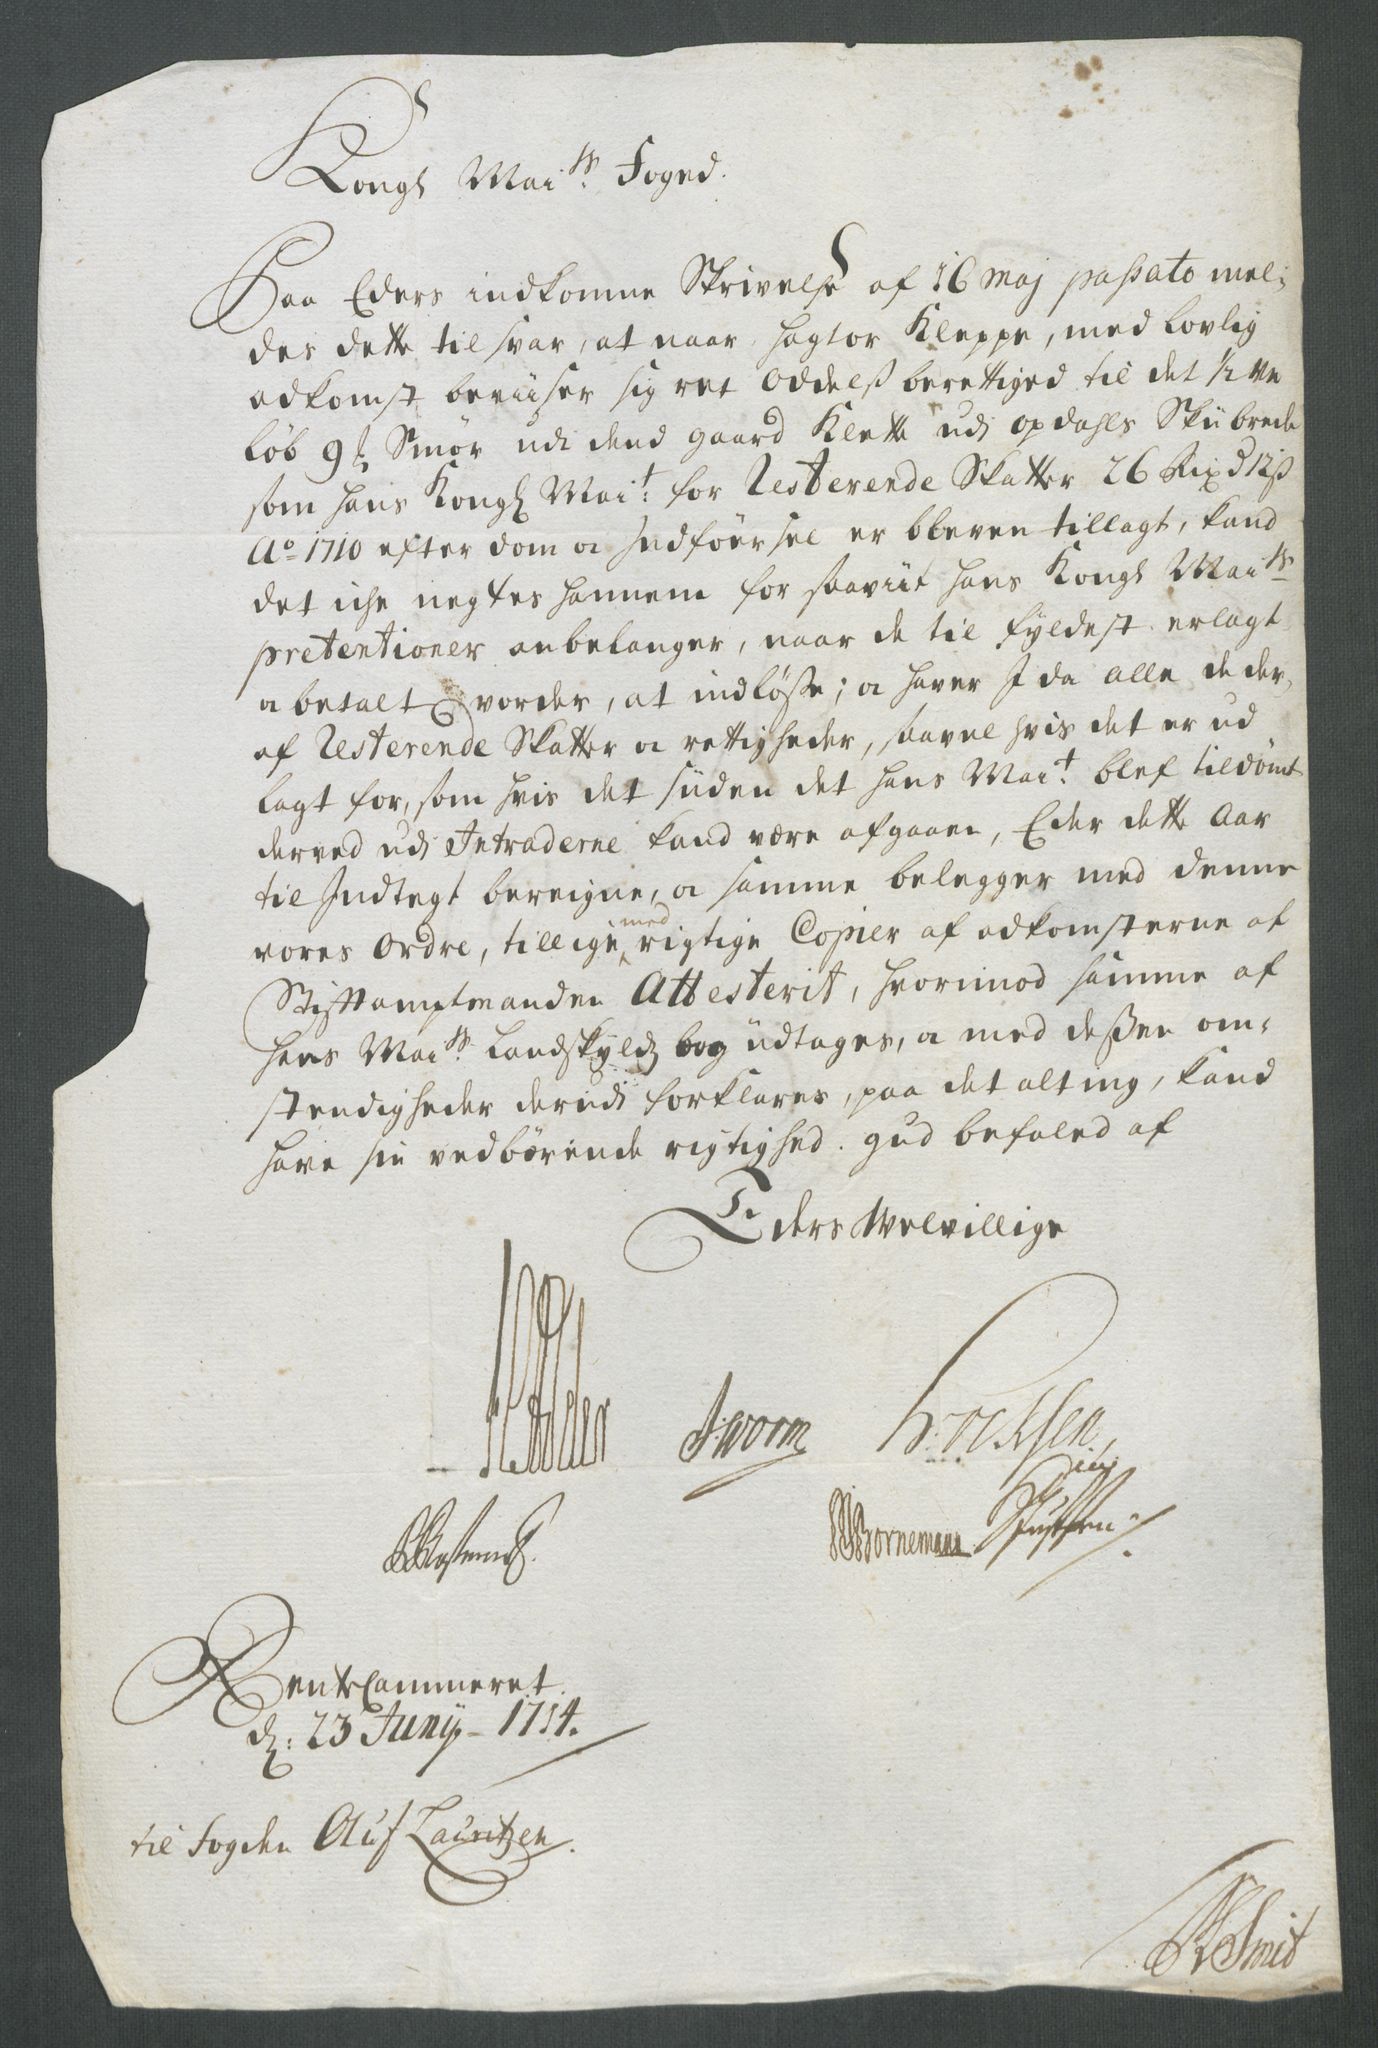 Kongl Mai.ts Foged.
Paa Eders indkomne Skrivelse af 16 Maj passato mel-
des dette til svar, at naar Hagtor Kleppe, med lovlig
adkomst beviiser sig ret Oddelss berettiged til det 1/2 
løb 9 Smør udi dend gaard Klette udi Opdahls Skibrede
som Hans Kongl Mai.t for Resterende Skatter 26 Rixd 12ss
Ao 1710 efter dom og Indføersel er bleven tillagt, kand
det iche negtes hannem for saaviit Hans Kongl Mai.ts
pretentioner anbelanger, naar de til fyldest erlagt
og betalt vorder, at indløsse; og haver I da alle de der-
af Resterende Skatter og rettigheder, saavel hvis det er ud
lagt for, som hvis det siiden det Hans Mai.t blef tildømt
derved udi Intraderne kand være afgaaen, Eder dette Aar
til Indtegt bereigne, og samme belegger med denne
vores Ordre, tillige med rigtige Copier af adkomsterne af
Stiftamptmanden Attesterit, hvorimod samme af
Hans Mai.ts Landskylds bog udtages, og med dessen om-
stendigheder derudi forklares, paa det alting, kand
have sin vedbørende rigtighed. Gud befaled af
Eders Welvillige
J. Worm
Bornemann
RenteCammeret
d: 23 Junij 1714.
til Fogden Oluf Lauritzen.
Smit